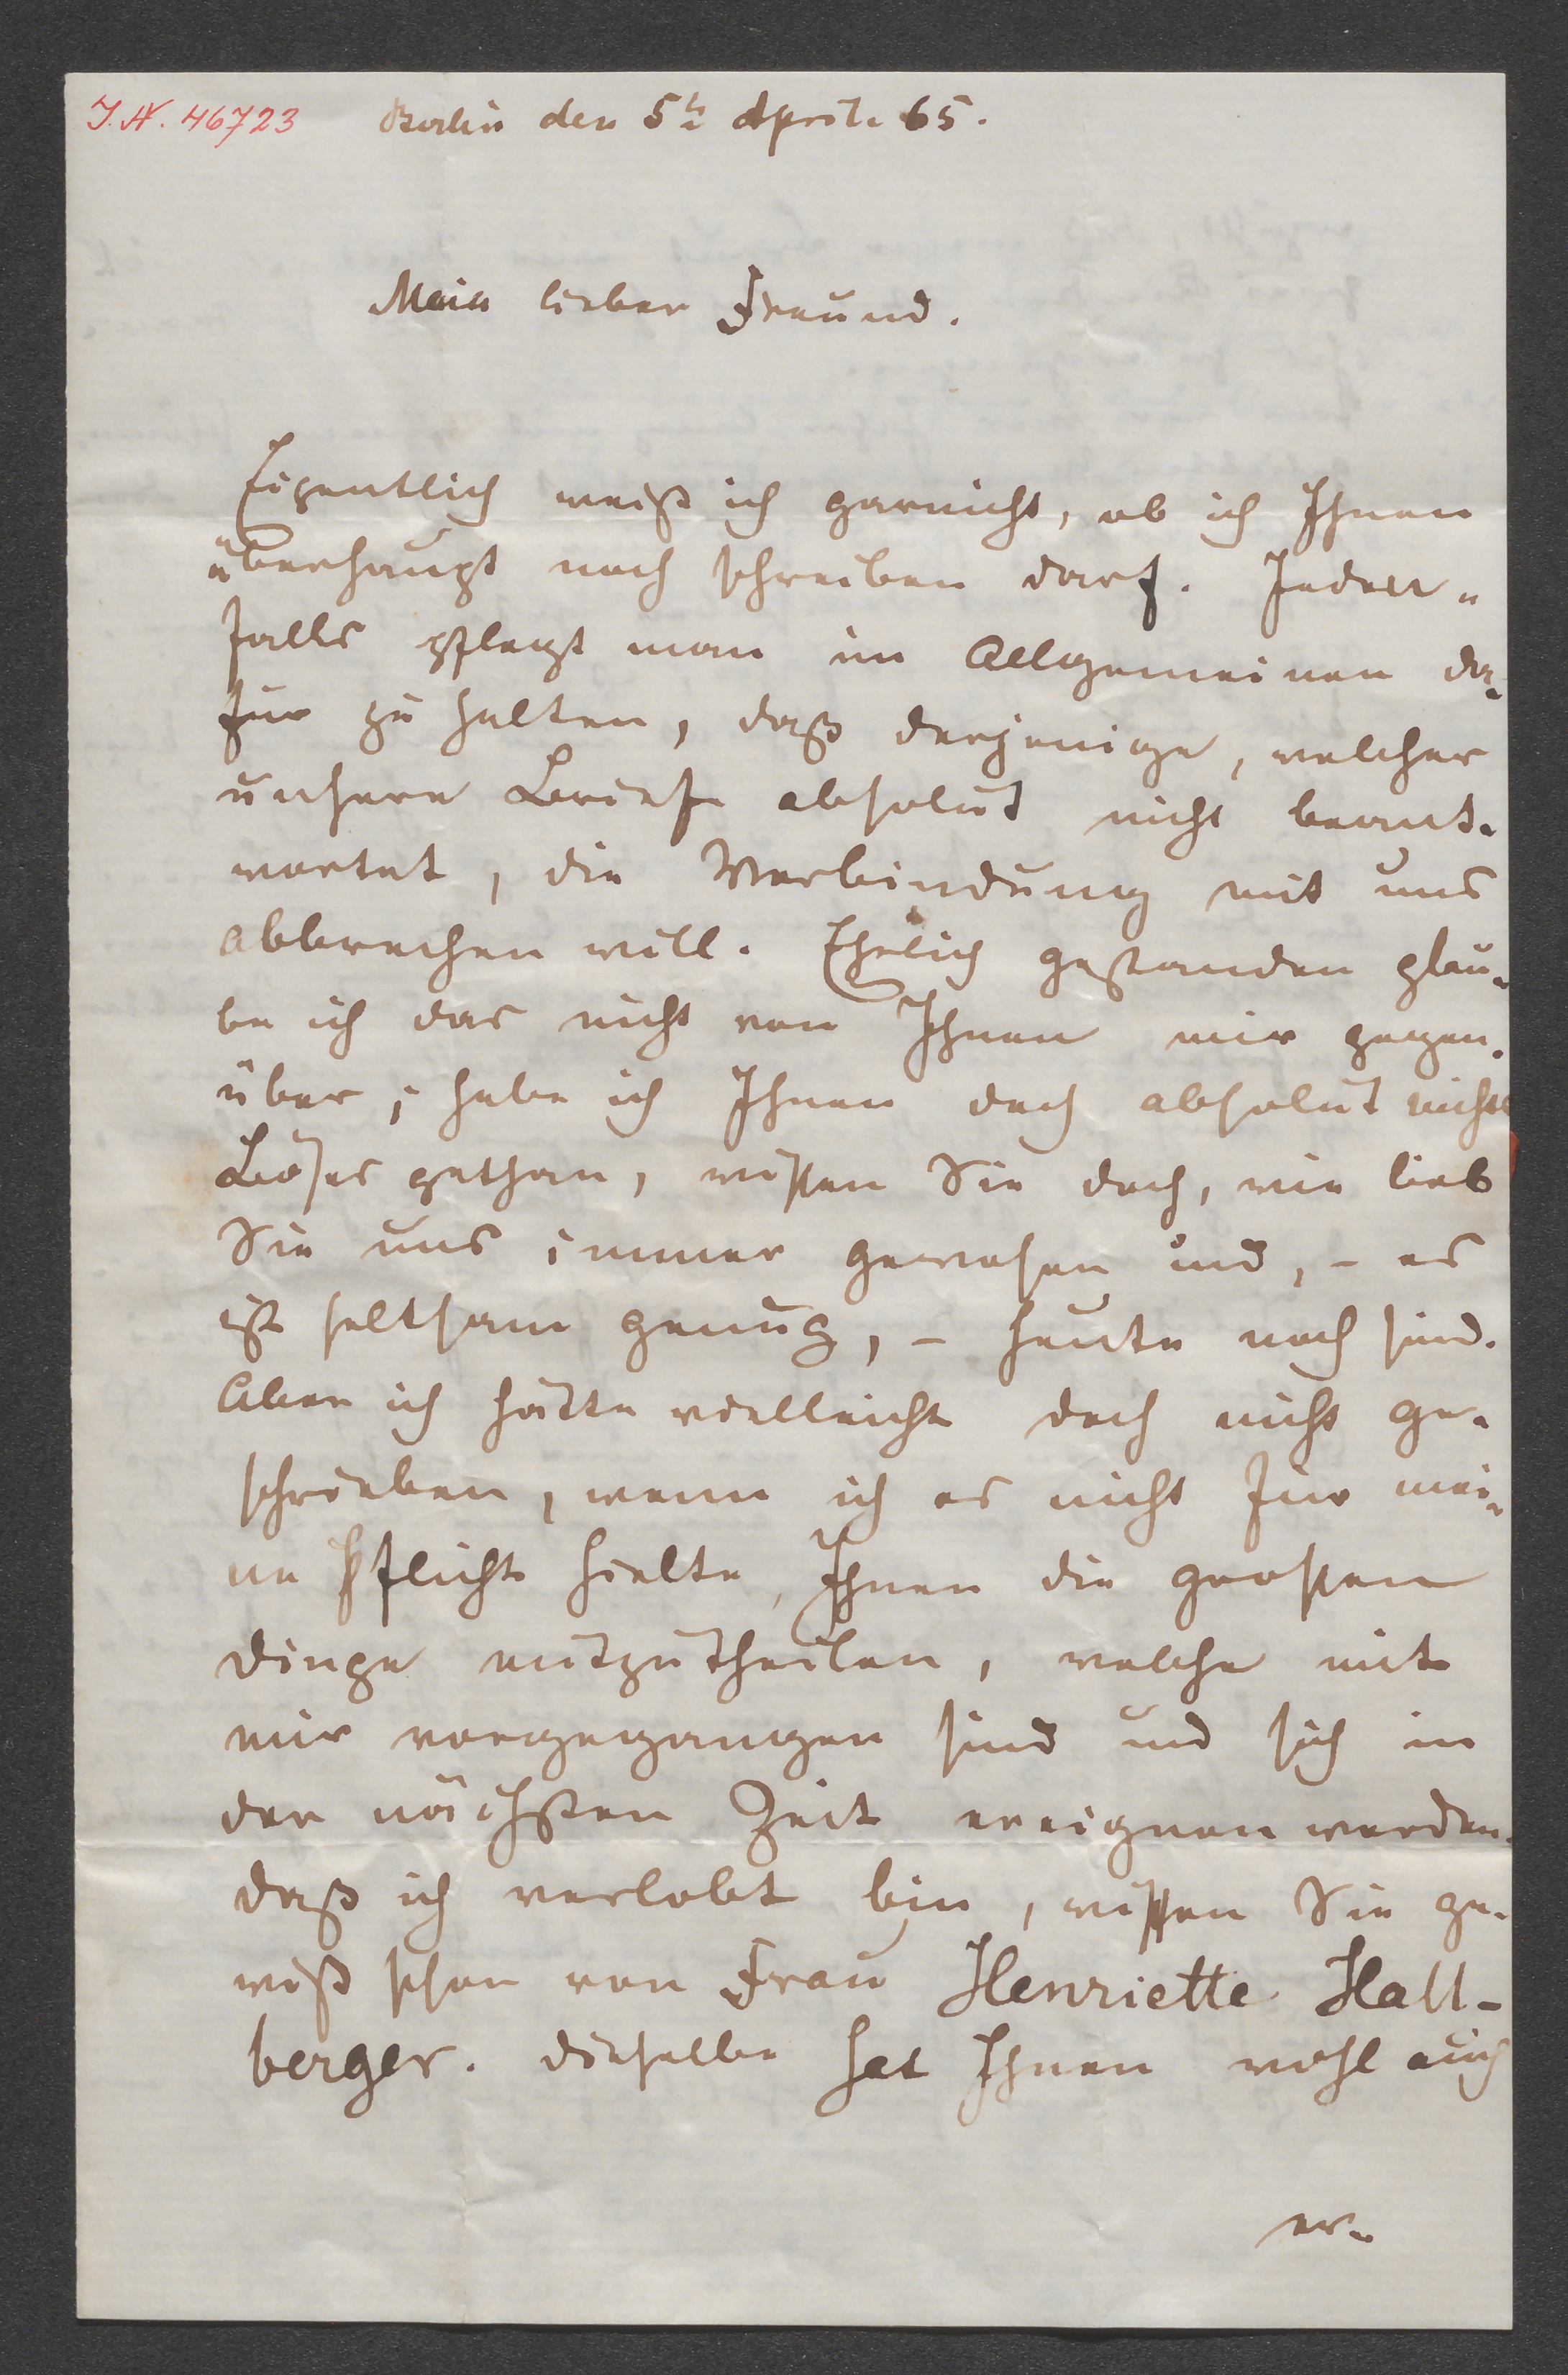 J.N. 46723 Berlin den 5ten April 65.
Mein lieber Freund.
Eigentlich weiß ich garnicht, ob ich Ihnen
überhaupt noch schreiben darf. Jeden-
falls pflegt man im Allgemeinen da-
für zu halten, daß derjenige, welcher
unsere Briefe absolut nicht beant-
wortet, die Verbindung mit uns
abbrechen will. Ehrlich gestanden glau-
be ich das nicht von Ihnen mir gegen-
über; habe ich Ihnen doch absolut nichts
Böses gethan, wissen Sie doch, wie lieb
Sie uns immer gewesen und, - es
ist seltsam genug, - heute noch sind.
Aber ich hätte vielleicht doch nicht ge-
schrieben, wenn ich es nicht für mei-
ne Pflicht hielte, Ihnen die großen
Dinge mitzutheilen, welche mit
mir vorgegangen sind und sich in
der nächsten Zeit ereignen werden.
Daß ich verlobt bin, wissen Sie ge-
wiß schon von Frau Henriette Hall-
berger. Dieselbe hat Ihnen wohl auch
er-